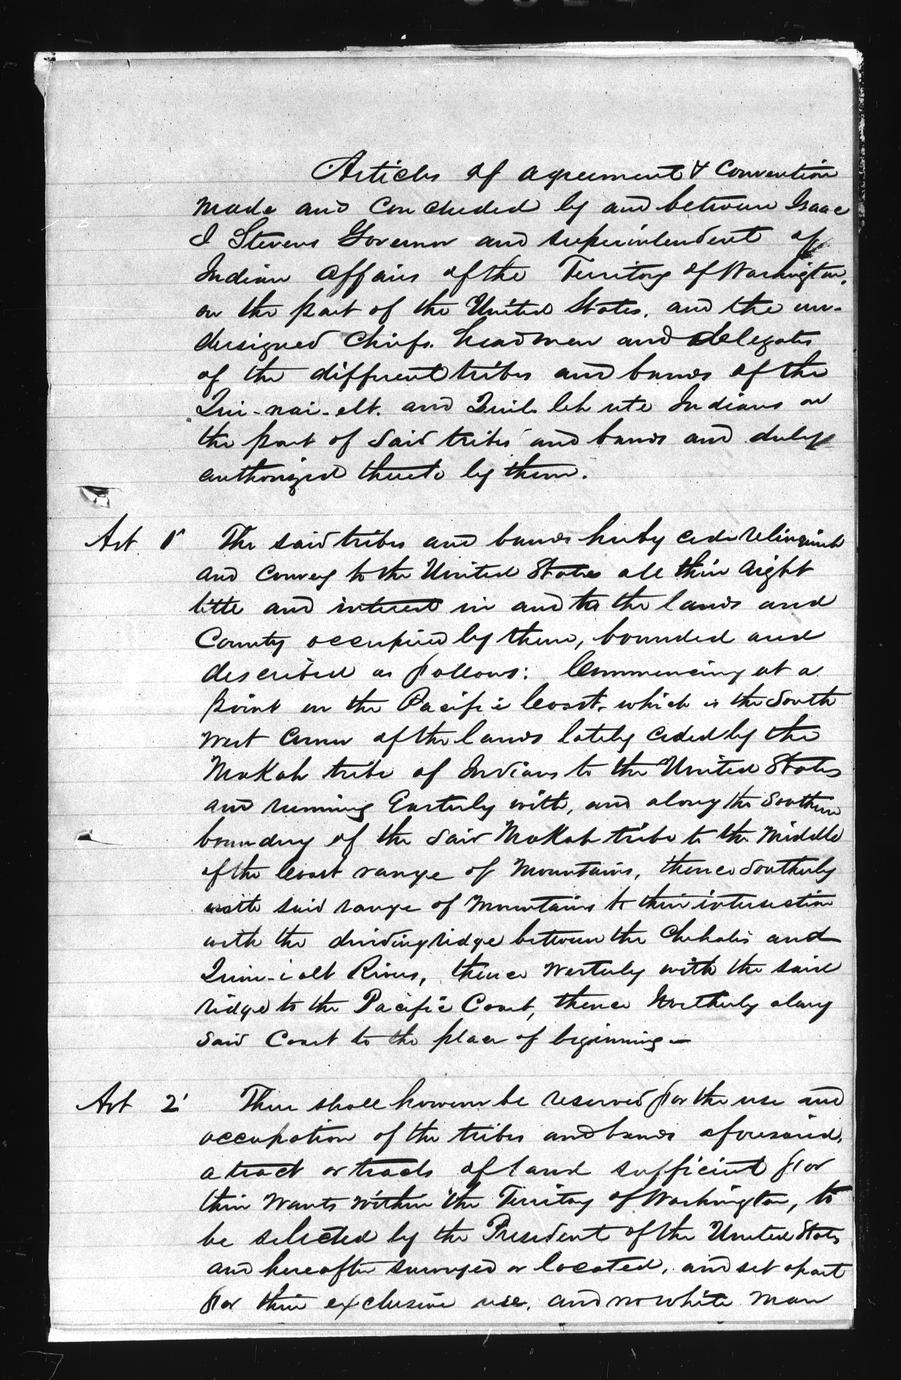 Articles of agreement & Convention
made and concluded by and between Isaac
I Stevens Governor and superintendent of
Indian affairs of the Territory of Washington,
on the part of the United States, and the un-
dersigned Chiefs. headmen and delegates
of the different tribes and bands of the
Qui-nai-elt. and Quil leh ute Indians on
the part of said tribes and bands and duly
authorized thereto by them.
Art 1st The said tribes and bands hereby cede relinquish
and convey to the United States all their right
title and interest in and to the lands and
Country occupied by them, bounded and
described as follows: Commencing at a
point on the Pacific Coast, which is the South
West Corner of the lands lately ceded by the
Makah tribe of Indians to the United States
and running Easterly with, and along the Southern
boundry of the said Makah tribe to the Middle
of the Coast range of Mountains, thence Southerly
with said range of Mountains to their intersection
with the dividing ridge between the Chehalis and
Quin-i alt Rivers, thence Westerly with the said
ridge to the Pacific Coast, thence Northerly along
said Coast to the place of beginning—
Art 2' There shall however be reserved for the use and
occupation of the tribes and bands aforesaid,
a tract or tracts of land sufficient for
their wants within the Territory of Washington, to
be selected by the President of the United States
and hereafter surveyed or located, and set apart
for their exclusive use, and no white man